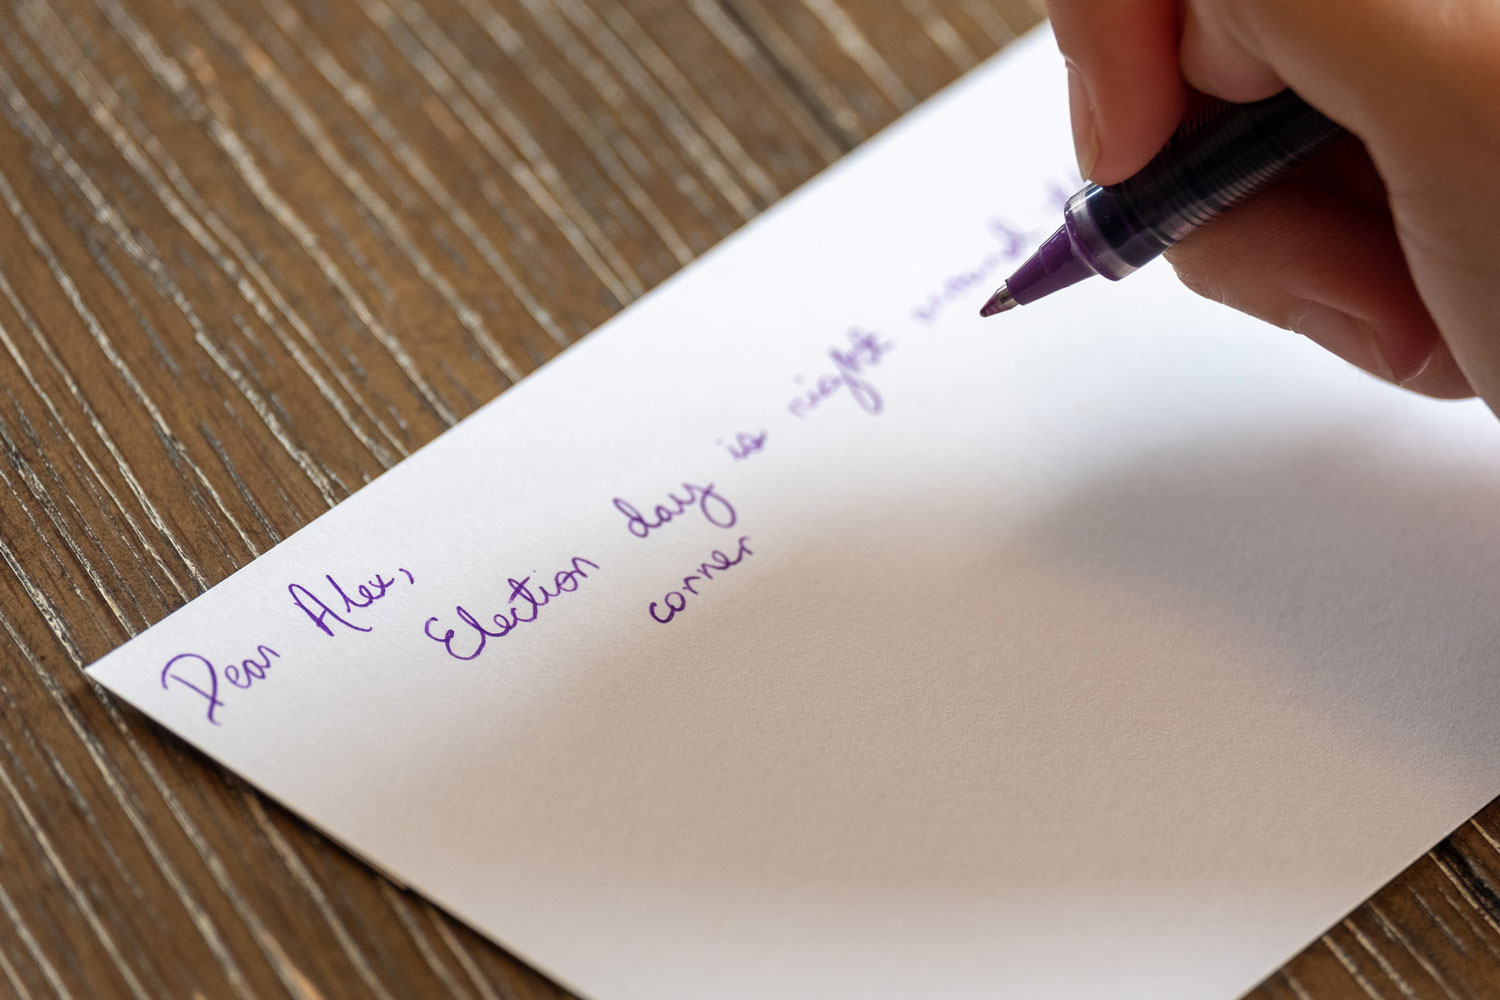 Dear Alex,
Election day is right around
corner